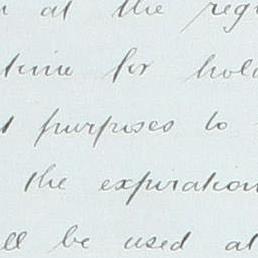 at the reg
time for hol
purposes to
the expiration
ll be used at